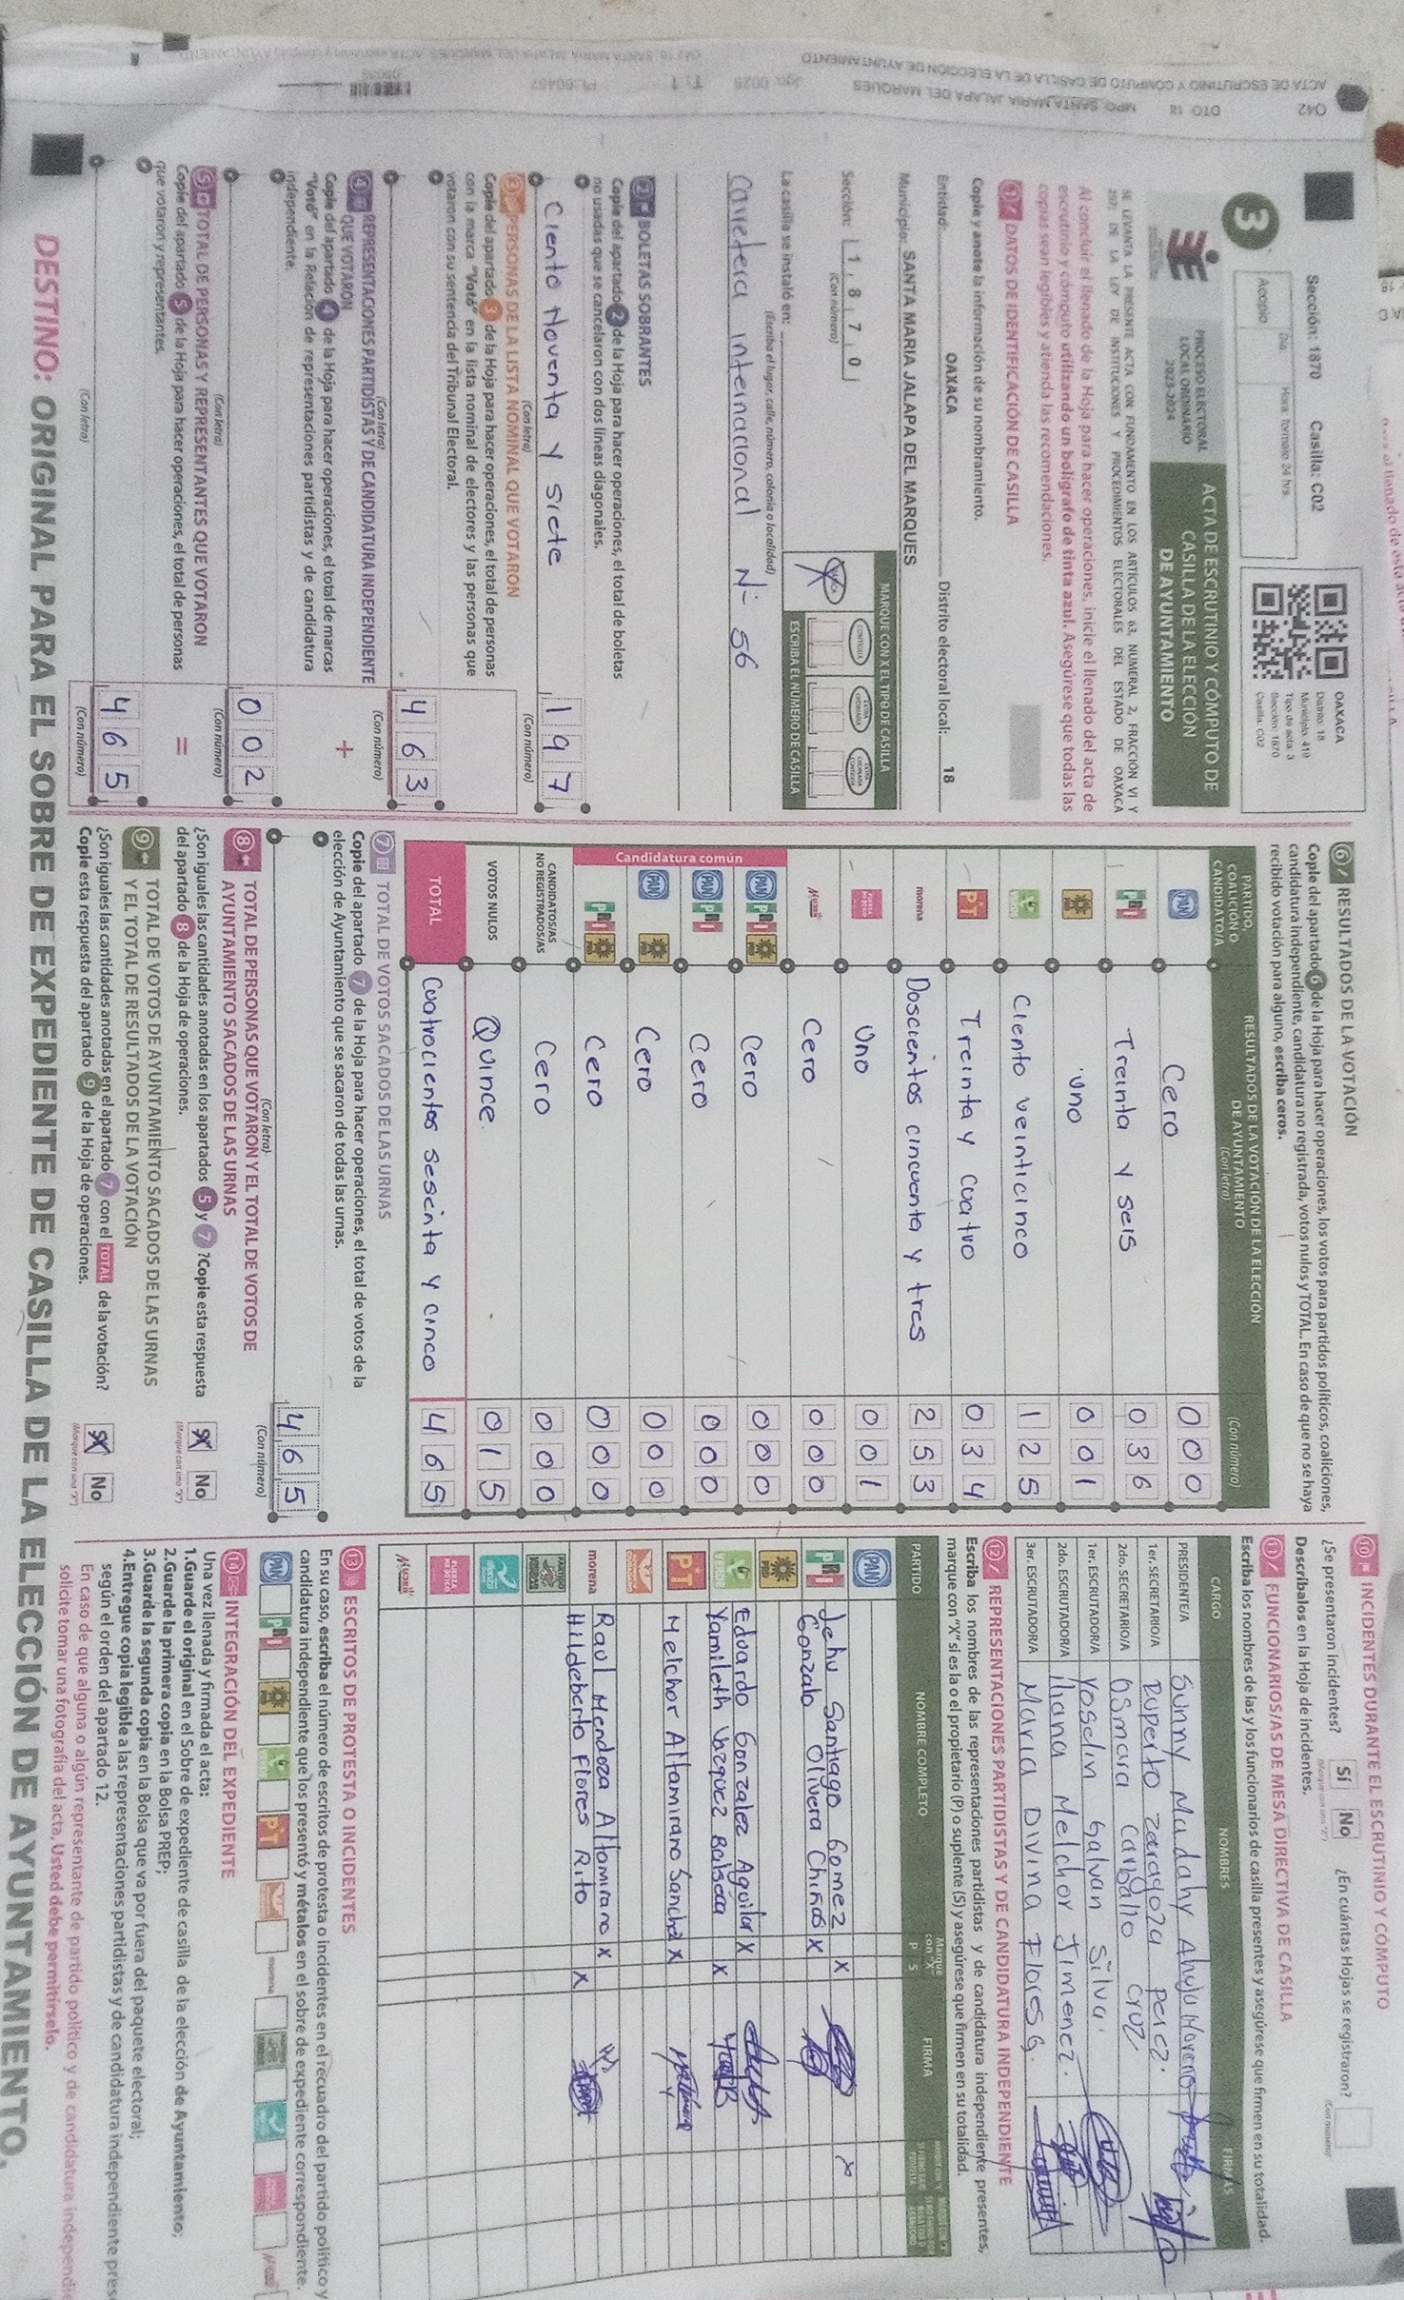 ACTA DE ESCRUTINIO Y CÓMPUTO DE CASILLA DE LA ELECCIÓN DE AYUNTAMIENTO
042 DTO 18 MPO: SANTA MARIA JALAPA DEL MARQUES
Sección: 1870 Casilla: C02
3
Acopio
Día Hora: formato 24 hrs.
OAXACA
Distrito: 18
Municipio: 419
Tipo de acta: 3
Sección: 1870
Casilla: C02
PROCESO ELECTORAL
LOCAL ORDINARIO
2023-2024
ACTA DE ESCRUTINIO Y CÓMPUTO DE
CASILLA DE LA ELECCIÓN
DE AYUNTAMIENTO
SE LEVANTA LA PRESENTE ACTA CON FUNDAMENTO EN LOS ARTÍCULOS 63, NUMERAL 2, FRACCIÓN VI Y
297; DE LA LEY DE INSTITUCIONES Y PROCEDIMIENTOS ELECTORALES DEL ESTADO DE OAXACA
Al concluir el llenado de la Hoja para hacer operaciones, inicie el llenado del acta de
escrutinio y cómputo utilizando un bolígrafo de tinta azul. Asegúrese que todas las
copias sean legibles y atienda las recomendaciones.
1 DATOS DE IDENTIFICACIÓN DE CASILLA
Copie y anote la información de su nombramiento.
Entidad: OAXACA Distrito electoral local: 18
Municipio: SANTA MARIA JALAPA DEL MARQUES
Sección: 1 8 7 0
(Con número)
MARQUE CON X EL TIPO DE CASILLA
ESCRIBA EL NÚMERO DE CASILLA
La casilla se instaló en:
(Escriba el lugar, calle, número, colonia o localidad)
Carretera internacional N= 56
2 BOLETAS SOBRANTES
Copie del apartado 2 de la Hoja para hacer operaciones, el total de boletas
no usadas que se cancelaron con dos líneas diagonales.
Ciento Noventa y siete 1 9 7
(Con letra) (Con número)
3 PERSONAS DE LA LISTA NOMINAL QUE VOTARON
Copie del apartado 3 de la Hoja para hacer operaciones, el total de personas
con la marca "Votó" en la lista nominal de electores y las personas que
votaron con su sentencia del Tribunal Electoral.
4 6 3
(Con letra) (Con número)
4 REPRESENTACIONES PARTIDISTAS Y DE CANDIDATURA INDEPENDIENTE
QUE VOTARON
Copie del apartado 4 de la Hoja para hacer operaciones, el total de marcas
"Votó" en la Relación de representaciones partidistas y de candidatura
independiente.
+
0 0 2
(Con letra) (Con número)
5 TOTAL DE PERSONAS Y REPRESENTANTES QUE VOTARON
Copie del apartado 5 de la Hoja para hacer operaciones, el total de personas
que votaron y representantes.
=
4 6 5
(Con letra) (Con número)
6 RESULTADOS DE LA VOTACIÓN
Copie del apartado 6 de la Hoja para hacer operaciones, los votos para partidos políticos, coaliciones,
candidatura independiente, candidatura no registrada, votos nulos y TOTAL. En caso de que no se haya
recibido votación para alguno, escriba ceros.
PARTIDO, COALICIÓN O CANDIDATO/A
RESULTADOS DE LA VOTACIÓN DE LA ELECCIÓN
DE AYUNTAMIENTO
(Con letra) (Con número)
PAN Cero 0 0 0
PRI Treinta y seis 0 3 6
PRD uno 0 0 1
VERDE Ciento veinticinco 1 2 5
PT Treinta y cuatro 0 3 4
morena Doscientos cincuenta y tres 2 5 3
FUERZA MÉXICO Uno 0 0 1
MUJER Cero 0 0 0
Candidatura común
PAN PRI PRD Cero 0 0 0
PAN PRI Cero 0 0 0
PAN PRD Cero 0 0 0
PRI PRD Cero 0 0 0
CANDIDATOS/AS NO REGISTRADOS/AS Cero 0 0 0
VOTOS NULOS Quince 0 1 5
TOTAL Cuatrocientos sesenta y cinco 4 6 5
7 TOTAL DE VOTOS SACADOS DE LAS URNAS
Copie del apartado 7 de la Hoja para hacer operaciones, el total de votos de la
elección de Ayuntamiento que se sacaron de todas las urnas.
4 6 5
(Con letra) (Con número)
8 TOTAL DE PERSONAS QUE VOTARON Y EL TOTAL DE VOTOS DE
AYUNTAMIENTO SACADOS DE LAS URNAS
¿Son iguales las cantidades anotadas en los apartados 5 y 7 ?Copie esta respuesta
del apartado 8 de la Hoja de operaciones.
Sí No
(Marque con una "X")
9 TOTAL DE VOTOS DE AYUNTAMIENTO SACADOS DE LAS URNAS
Y EL TOTAL DE RESULTADOS DE LA VOTACIÓN
¿Son iguales las cantidades anotadas en el apartado 7 con el TOTAL de la votación?
Copie esta respuesta del apartado 9 de la Hoja de operaciones.
Sí No
(Marque con una "X")
10 INCIDENTES DURANTE EL ESCRUTINIO Y CÓMPUTO
¿Se presentaron incidentes? Sí No ¿En cuántas Hojas se registraron?
(Marque con una "X") (Con número)
Descríbalos en la Hoja de incidentes.
11 FUNCIONARIOS/AS DE MESA DIRECTIVA DE CASILLA
Escriba los nombres de las y los funcionarios de casilla presentes y asegúrese que firmen en su totalidad.
CARGO NOMBRES FIRMAS
PRESIDENTE/A Sunny Madahy Ahuja Moreno
1er. SECRETARIO/A Ruperto Zaragoza perez.
2do. SECRETARIO/A Osmara Carballo Cruz
1er. ESCRUTADOR/A Yoselin Galvan Silva.
2do. ESCRUTADOR/A Iliana Melchor Jimenez.
3er. ESCRUTADOR/A Maria Divina Flores G.
12 REPRESENTACIONES PARTIDISTAS Y DE CANDIDATURA INDEPENDIENTE
Escriba los nombres de las representaciones partidistas y de candidatura independiente presentes,
marque con "X" si es la o el propietario (P) o suplente (S) y asegúrese que firmen en su totalidad.
PARTIDO NOMBRE COMPLETO Marque con "X" P S FIRMA
PAN
PRI Jehu Santiago Gomez X X
Gonzalo Olivera Chiñas X
PRD
VERDE Eduardo Gonzalez Aguilar X
Yamileth Vazquez Balseca X
PT Melchor Altamirano Sanchez X
morena Raul Mendoza Altamirano X
Hildeberto Flores Rito X
13 ESCRITOS DE PROTESTA O INCIDENTES
En su caso, escriba el número de escritos de protesta o incidentes en el recuadro del partido político y
candidatura independiente que los presentó y métalos en el sobre de expediente correspondiente.
14 INTEGRACIÓN DEL EXPEDIENTE
Una vez llenada y firmada el acta:
1.Guarde el original en el Sobre de expediente de casilla de la elección de Ayuntamiento;
2.Guarde la primera copia en la Bolsa PREP;
3.Guarde la segunda copia en la Bolsa que va por fuera del paquete electoral;
4.Entregue copia legible a las representaciones partidistas y de candidatura independiente pres
según el orden del apartado 12.
En caso de que alguna o algún representante de partido político y de candidatura independi
solicite tomar una fotografía del acta, Usted debe permitírselo.
DESTINO: ORIGINAL PARA EL SOBRE DE EXPEDIENTE DE CASILLA DE LA ELECCIÓN DE AYUNTAMIENTO.